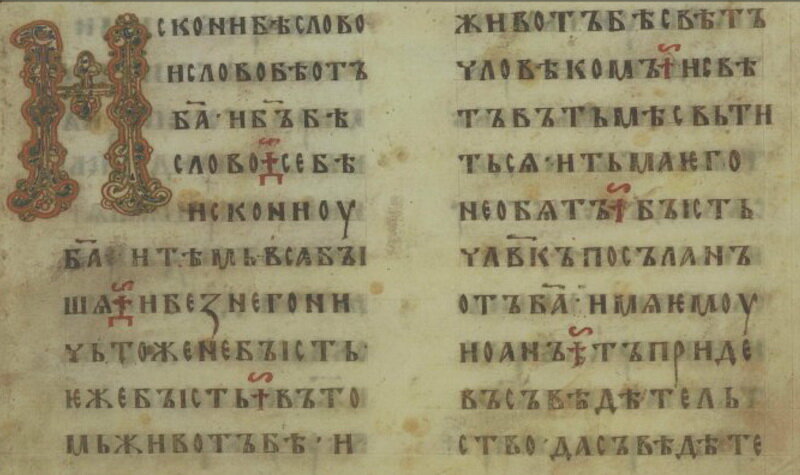 ИСКОНИБѢСЛОВО
ИСЛОВОБѢОТЪ
БА҃·ИБЪ҃БѢ
СЛОВО⁜СЕБѢ
ИСКОНИОУ
БА҃ИТѢМЬВСАБЪІ
ШѦ⁜ИБЕЗНЕГОНИ
ЧЬТОЖЕНЕБЪІСТЬ·
ѤЖЕБЪІСТЬ⁜ВЪТО
МЬЖИВОТЪБѢ·И
ЖИВОТЪБѢСВѢТЪ
ЧЛОВѢКОМЪ⁜ИСВѢ
ТЪВЪТЬМѢСВЬТИ
ТЬСѦ·ИТЬМАѤГО
НЕОБѦТЪ⁜БЪІСТЬ
ЧЛВ҃КЪПОСЪЛАНЪ
ОТЪБА҃·ИМѦѤМОУ
ИОАНЪ⁜ТЪПРИДЕ
ВЪСЪВѢДѢТЕЛЬ
СТВО·ДАСЪВѢДѢТЕ